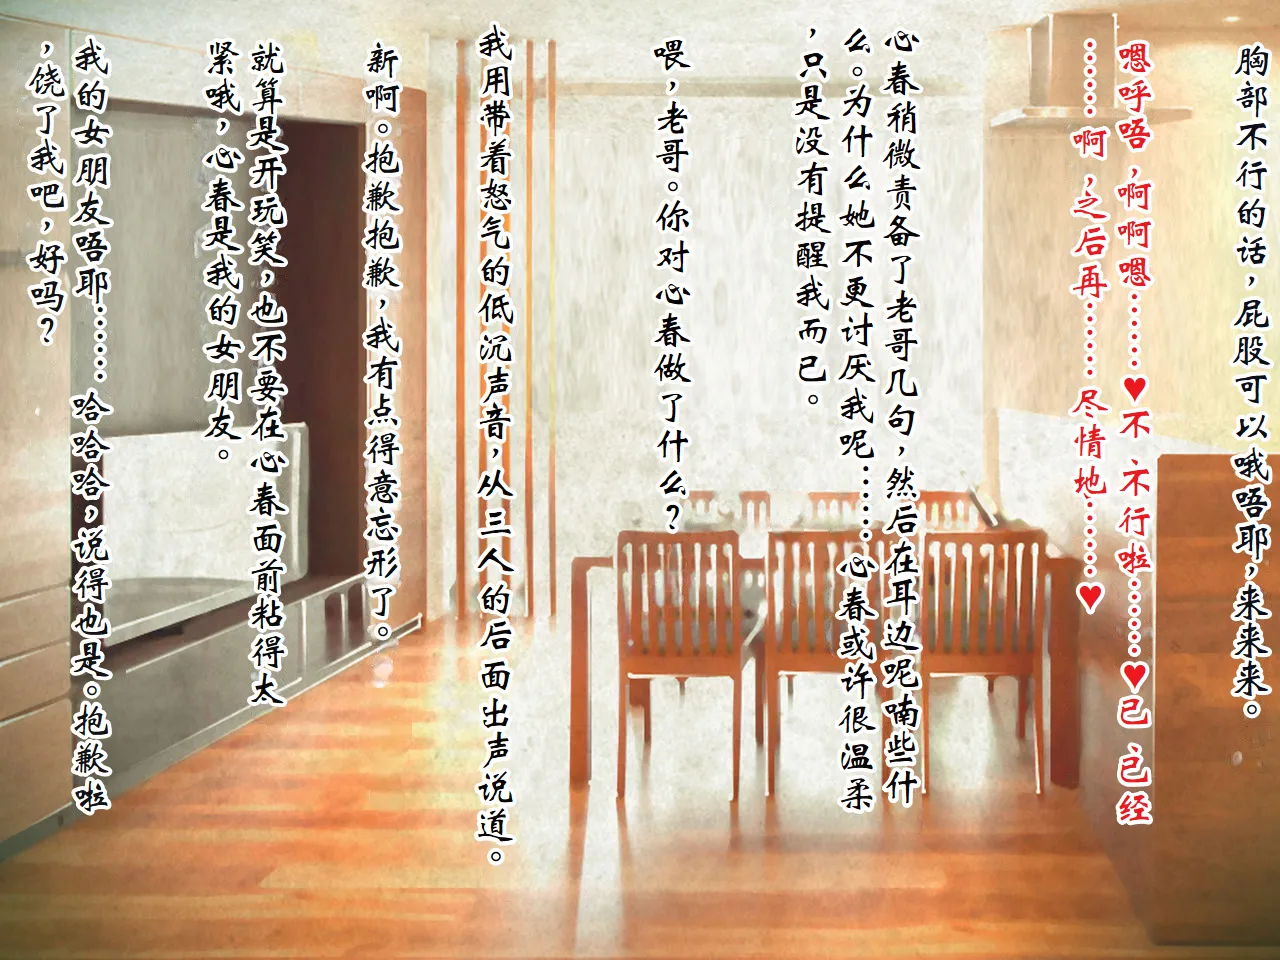 胸部不行的话，屁股可以哦唔耶，来来来。
嗯呼唔，啊啊嗯……♥不、不行啦……♥已、已经
……啊，之后再……尽情地……♥
心春稍微责备了老哥几句，然后在耳边呢喃些什
么。为什么她不更讨厌我呢……心春或许很温柔
，只是没有提醒我而已。
喂，老哥。你对心春做了什么？
我用带着怒气的低沉声音，从三人的后面出声说道。
新啊。抱歉抱歉，我有点得意忘形了。
就算是开玩笑，也不要在心春面前粘得太
紧哦，心春是我的女朋友。
我的女朋友唔耶……哈哈哈，说得也是。抱歉啦
，饶了我吧，好吗？